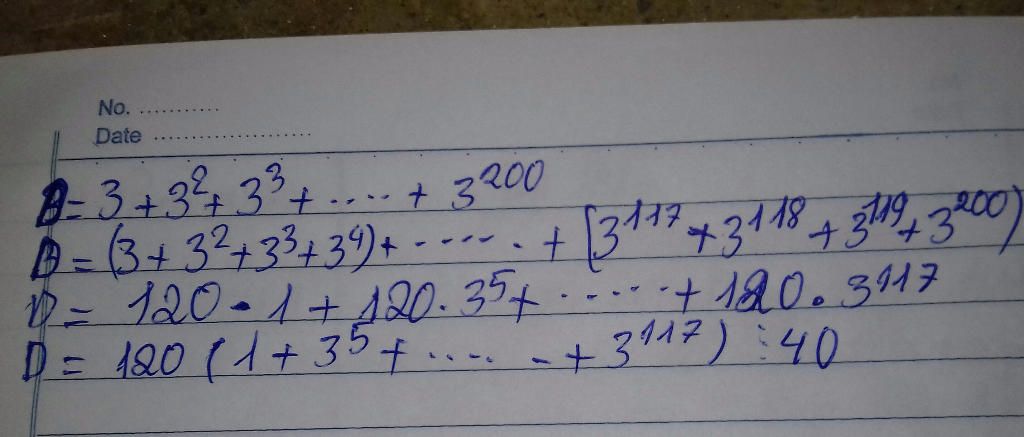 No. ...........
Date ......................
B = 3 + 3² + 3³ + ..... + 3²⁰⁰
D = (3 + 3² + 3³ + 3⁴) + ...... + [3¹¹⁷ + 3¹¹⁸ + 3¹¹⁹ + 3²⁰⁰)
D = 120 · 1 + 120 · 3⁵ + ...... + 120 · 3¹¹⁷
D = 120 (1 + 3⁵ + ..... + 3¹¹⁷) ⋮ 40